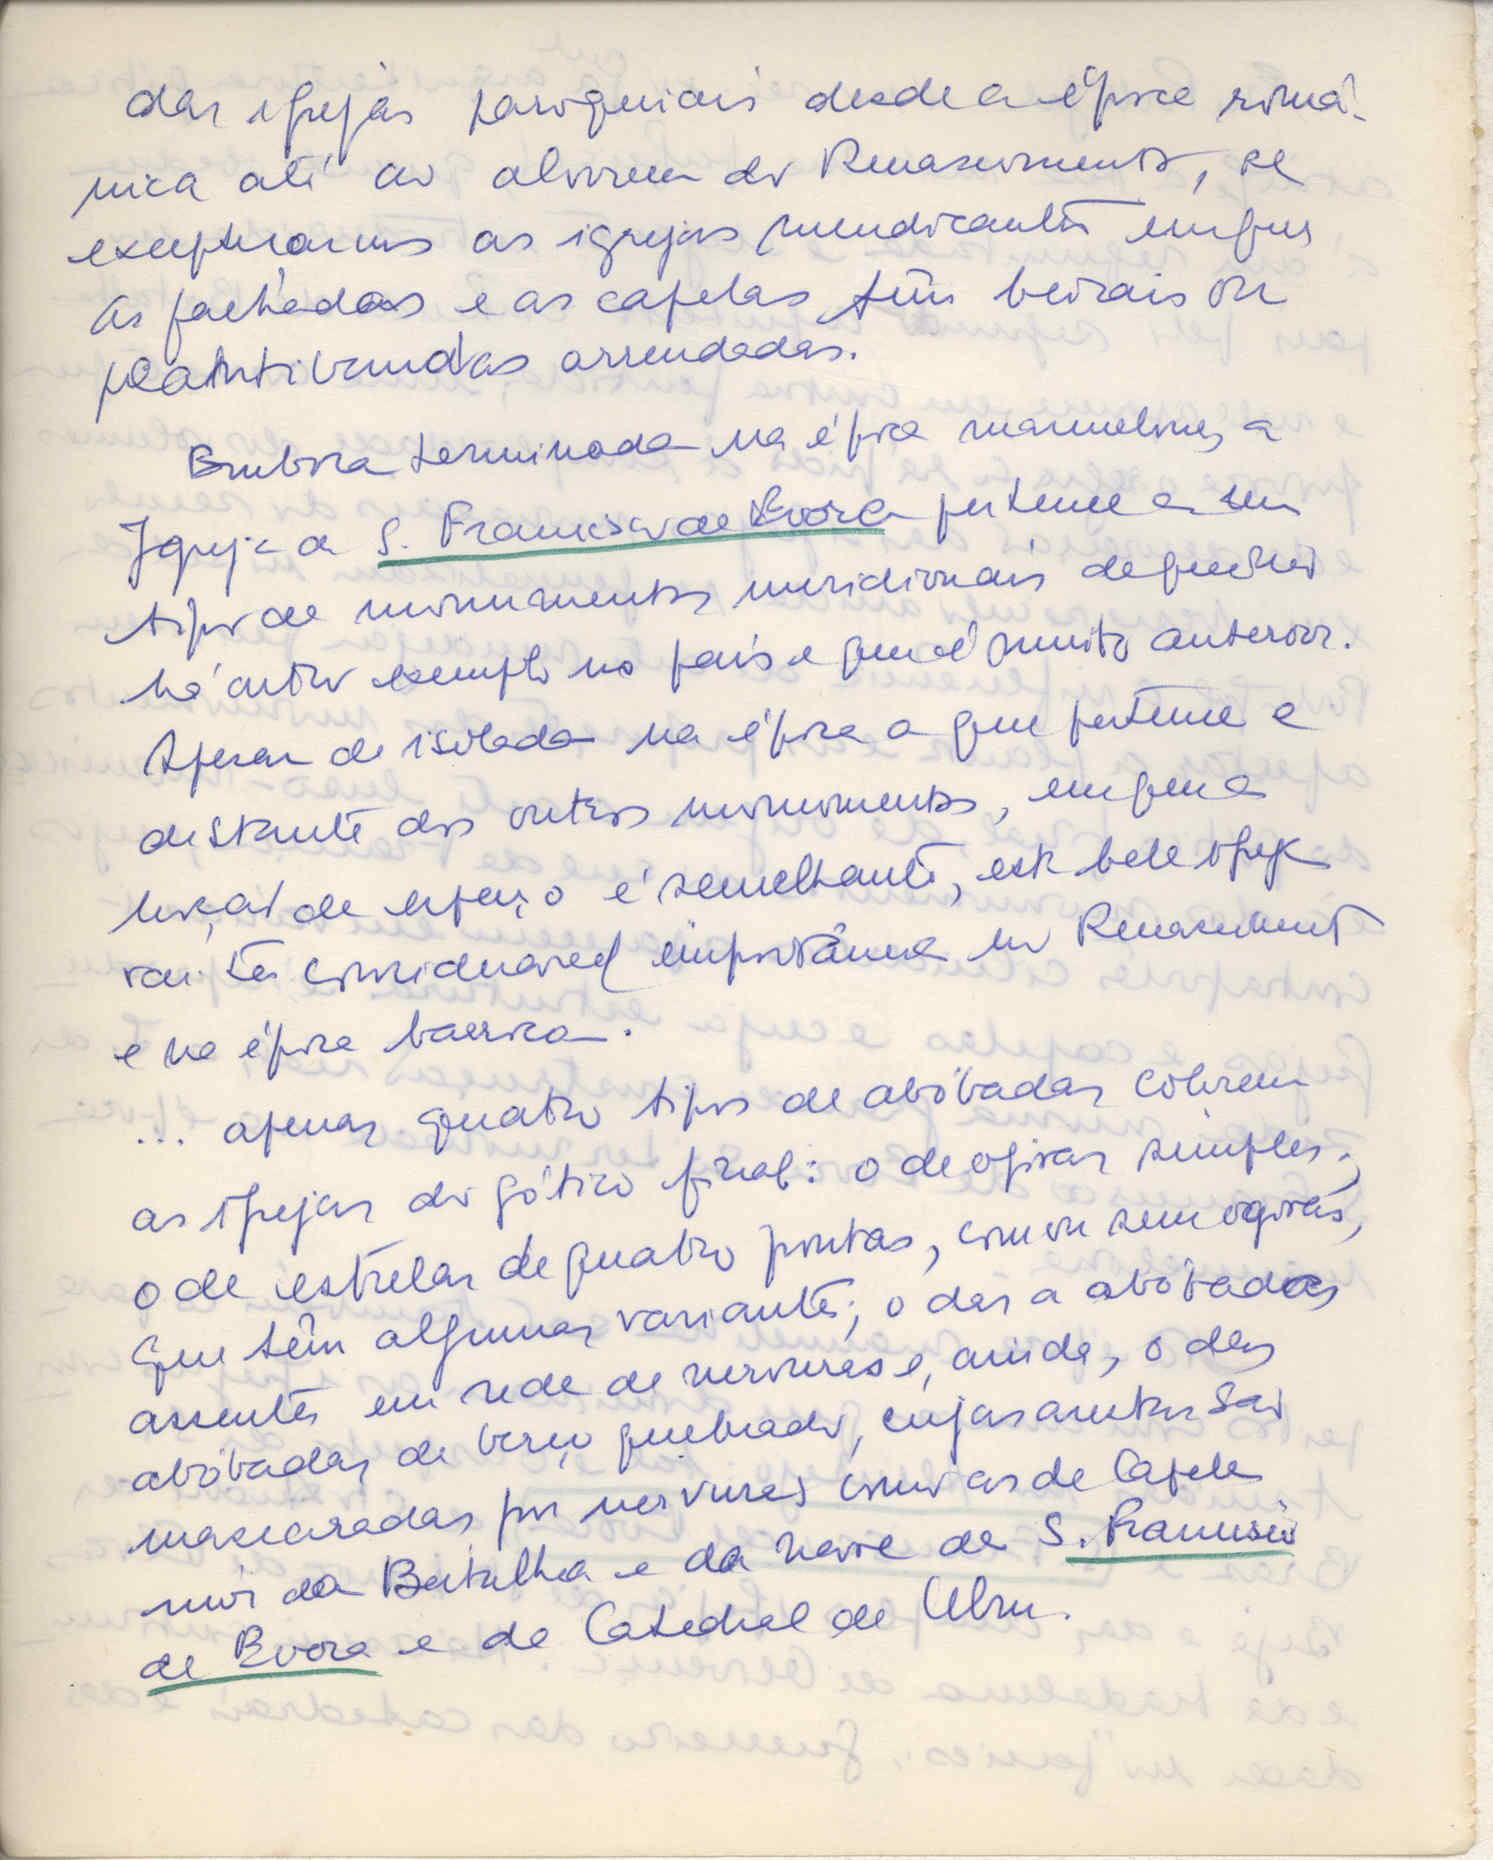 das igrejas paroquiais desde a época romá-
nica até ao alvorecer do Renascimento, se
exceptuarmos as igrejas mendicantes em que
as fachadas e as capelas têm beirais ou
platibandas arrendadas.
Embora terminada na época manuelina, a
Igreja de S. Francisco de Évora pertence a um
tipo de monumentos meridionais de que não
há outro exemplo no país e que é muito anterior.
Apesar de isolada na época a que pertence e
distante dos outros monumentos, em que a
noção de espaço é semelhante, esta bela igreja
vai ter considerável importância no Renascimento
e na época barroca.
... apenas quatro tipos de abóbadas cobrem
as igrejas do gótico final: o de ogivas simples;
o de estrelas de quatro pontas, com ou sem ogivas,
que têm algumas variantes; o das abóbadas
assentes em rede de nervuras e, ainda, o das
abóbadas de berço quebrado, cujas arestas são
mascaradas por nervuras como as da Capela
mor da Batalha e da nave de S. Francisco
de Evora e da Catedral de